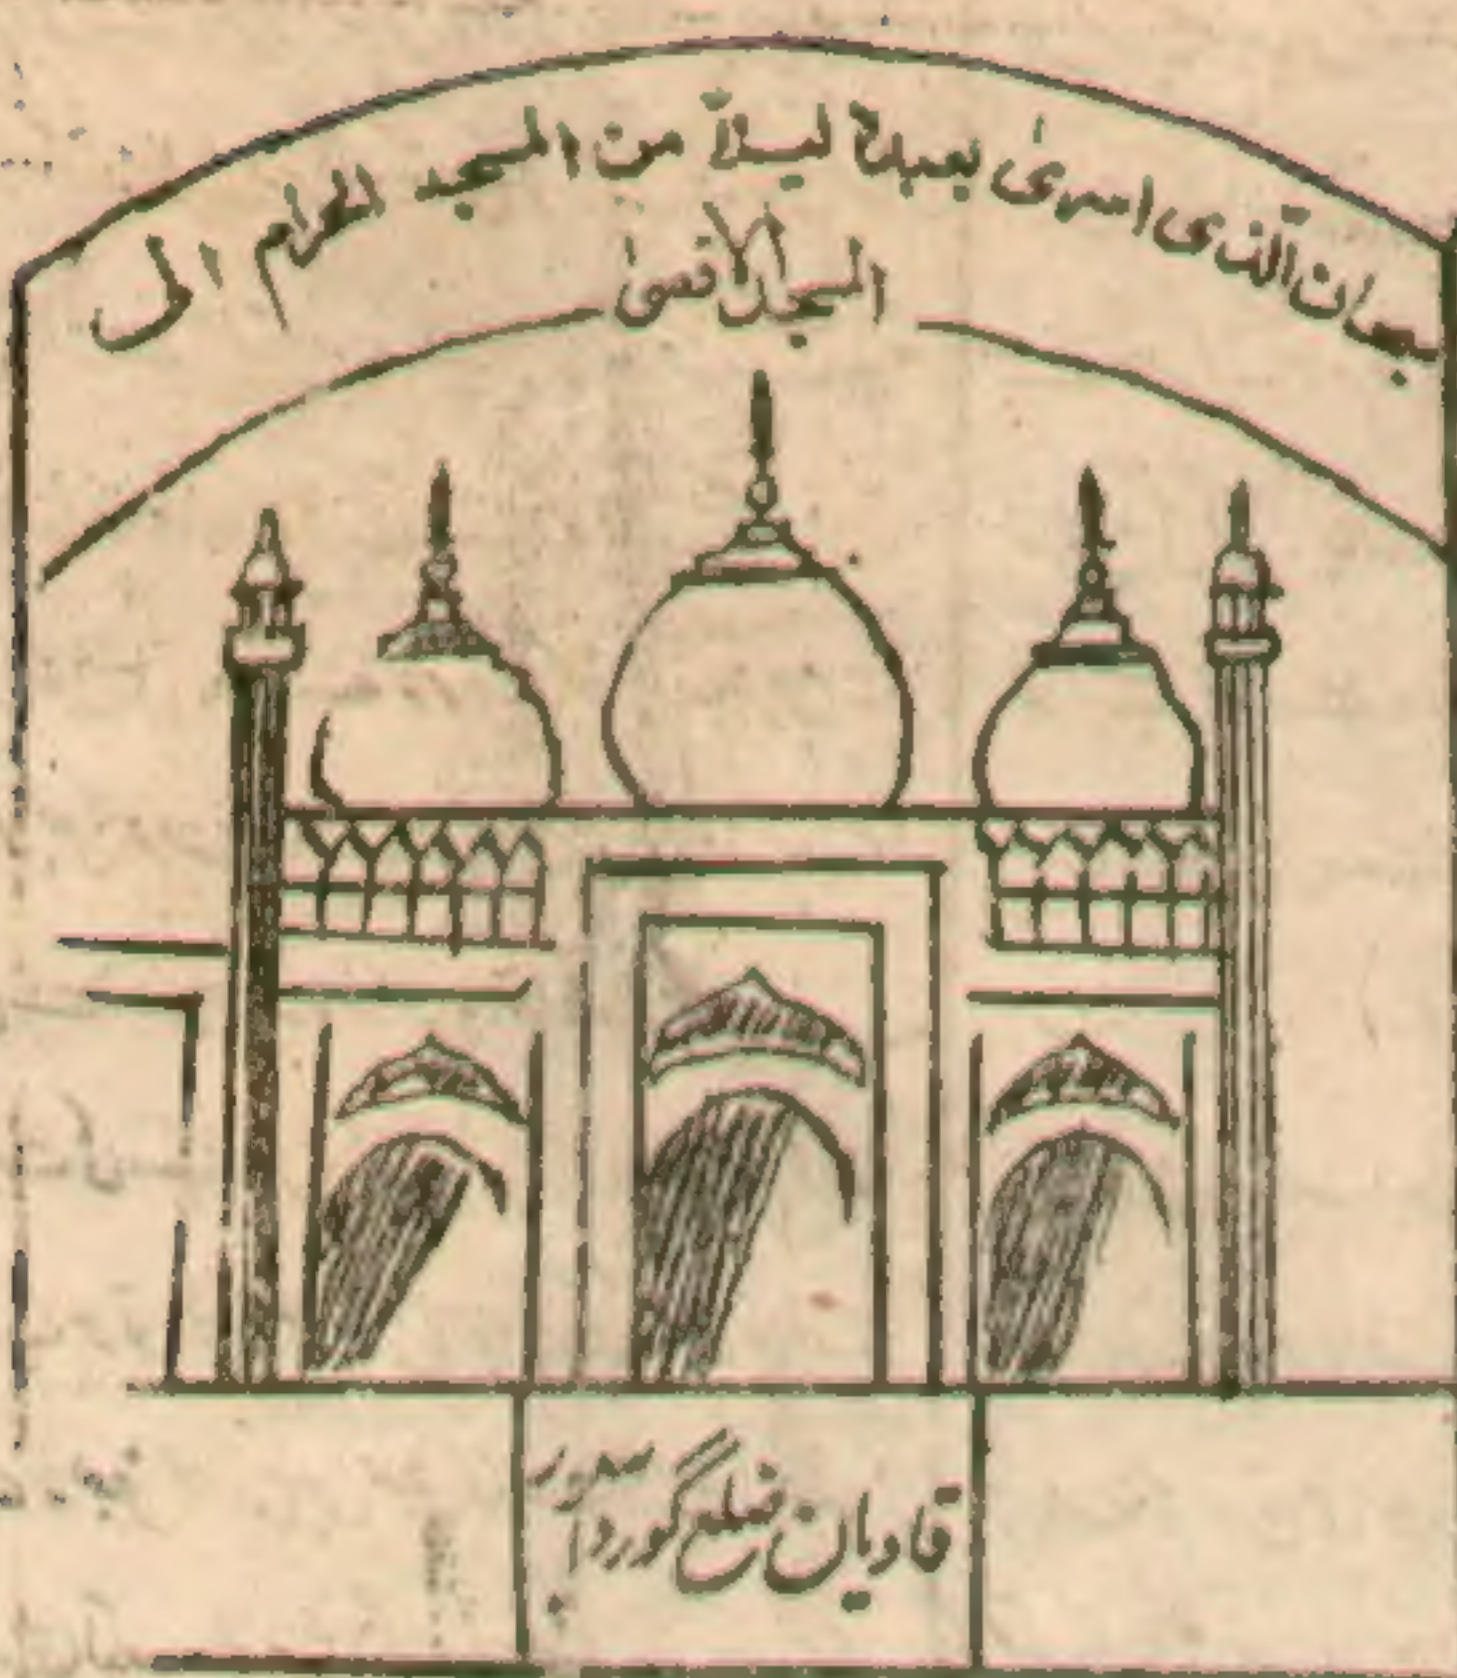 سبحان الّذی اسریٰ بعبدہٖ لیلاً من المسجد الحرام الی
المسجد الاقصیٰ
قادیان ضلع گورداسپور